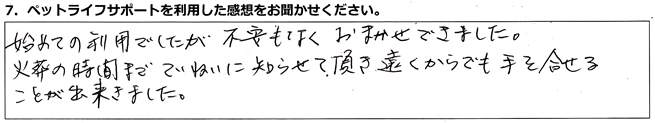 7．ペットライフサポートを利用した感想をお聞かせください。
始めての利用でしたが 不安もなく おまかせできました。
火葬の時間まで ていねいに知らせて頂き遠くからでも手を合せる
ことが出来きました。